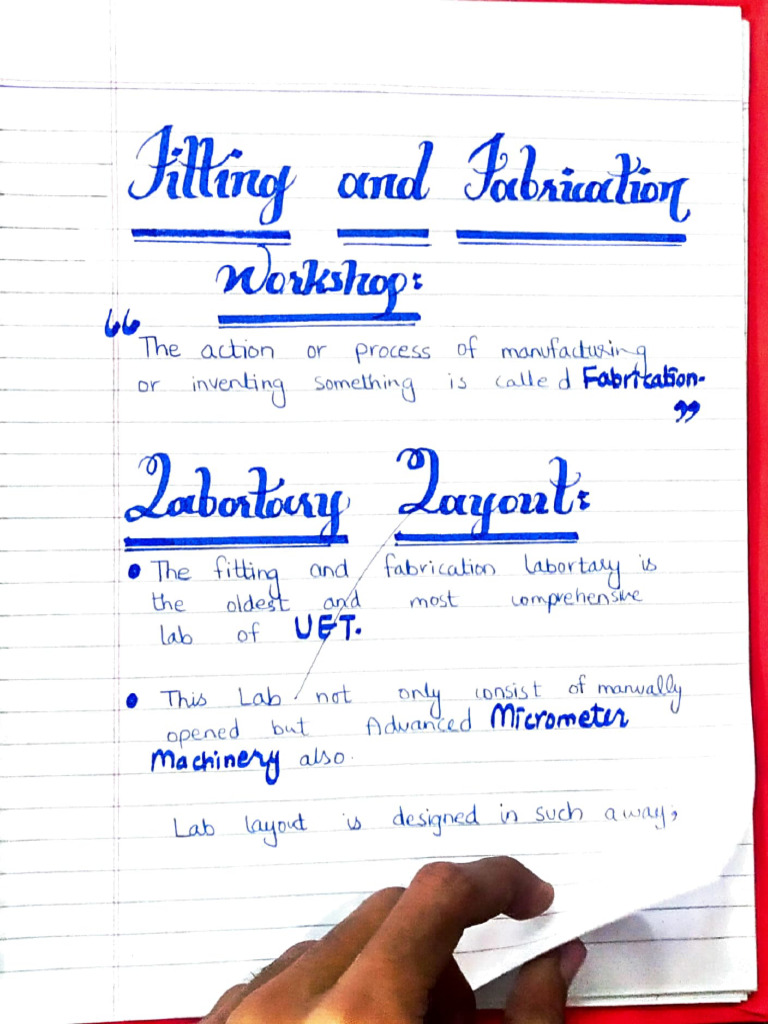 Fitting and Fabrication
Workshop:
“The action or process of manufacturing
or inventing something is called Fabrication.
”
Labortary Layout:
• The fitting and fabrication labortary is
the oldest and most comprehensive
lab of UET.
• This Lab not only consist of manually
opened but Advanced Micrometer
Machinery also.
Lab layout is designed in such away;